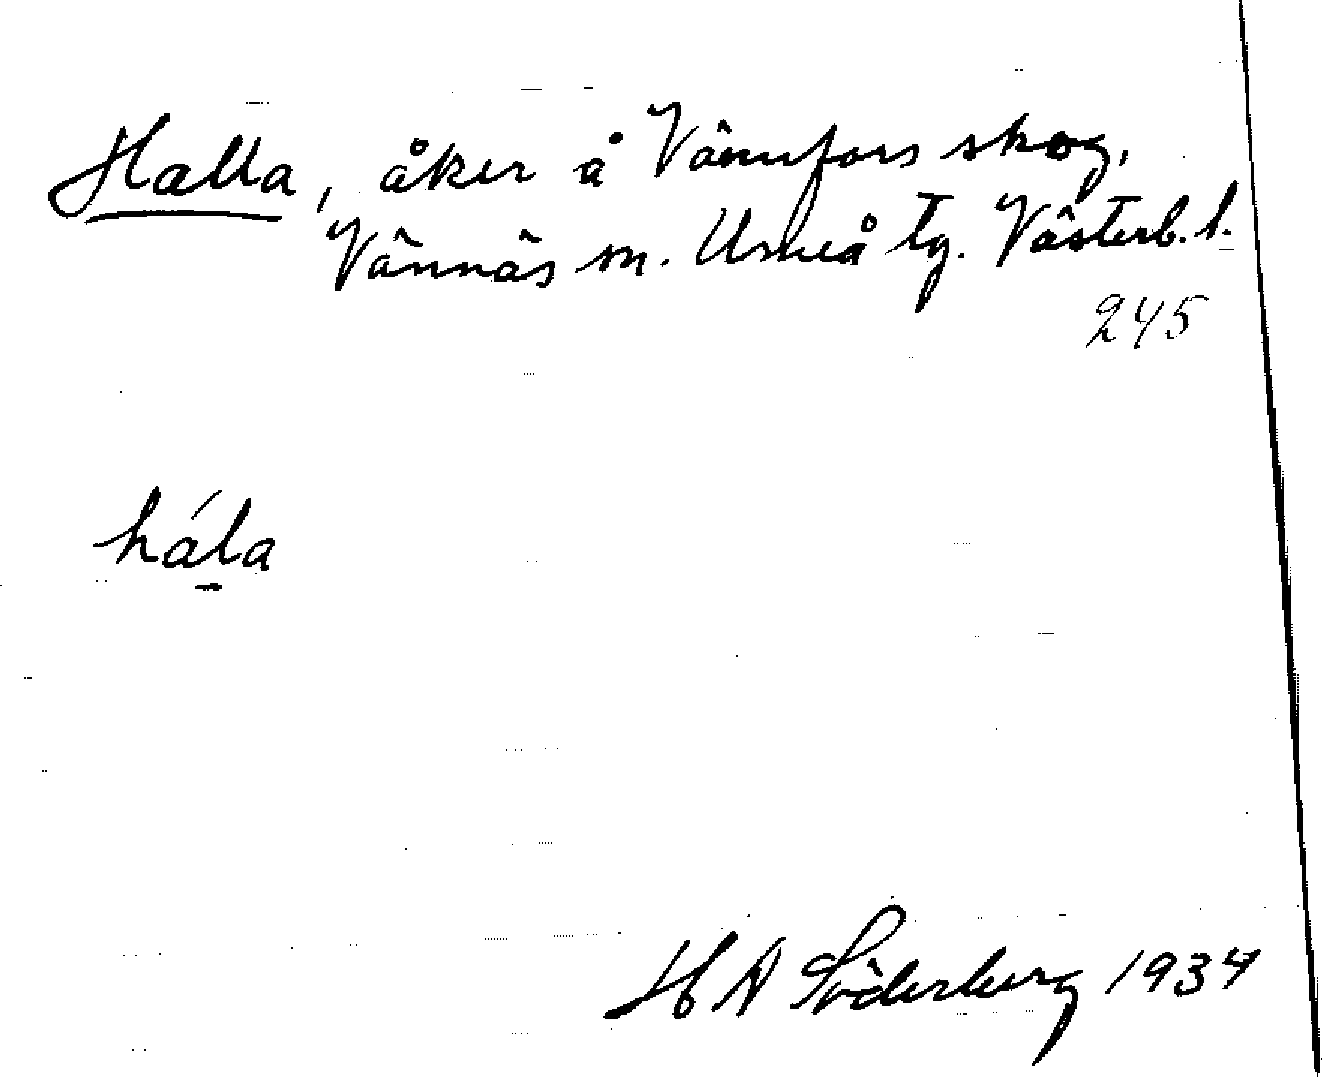 Halla, åker å Vännfors skog,
Vännäs sn. Umeå tg. Västerb. l.
245
hála
H A Söderberg 1934